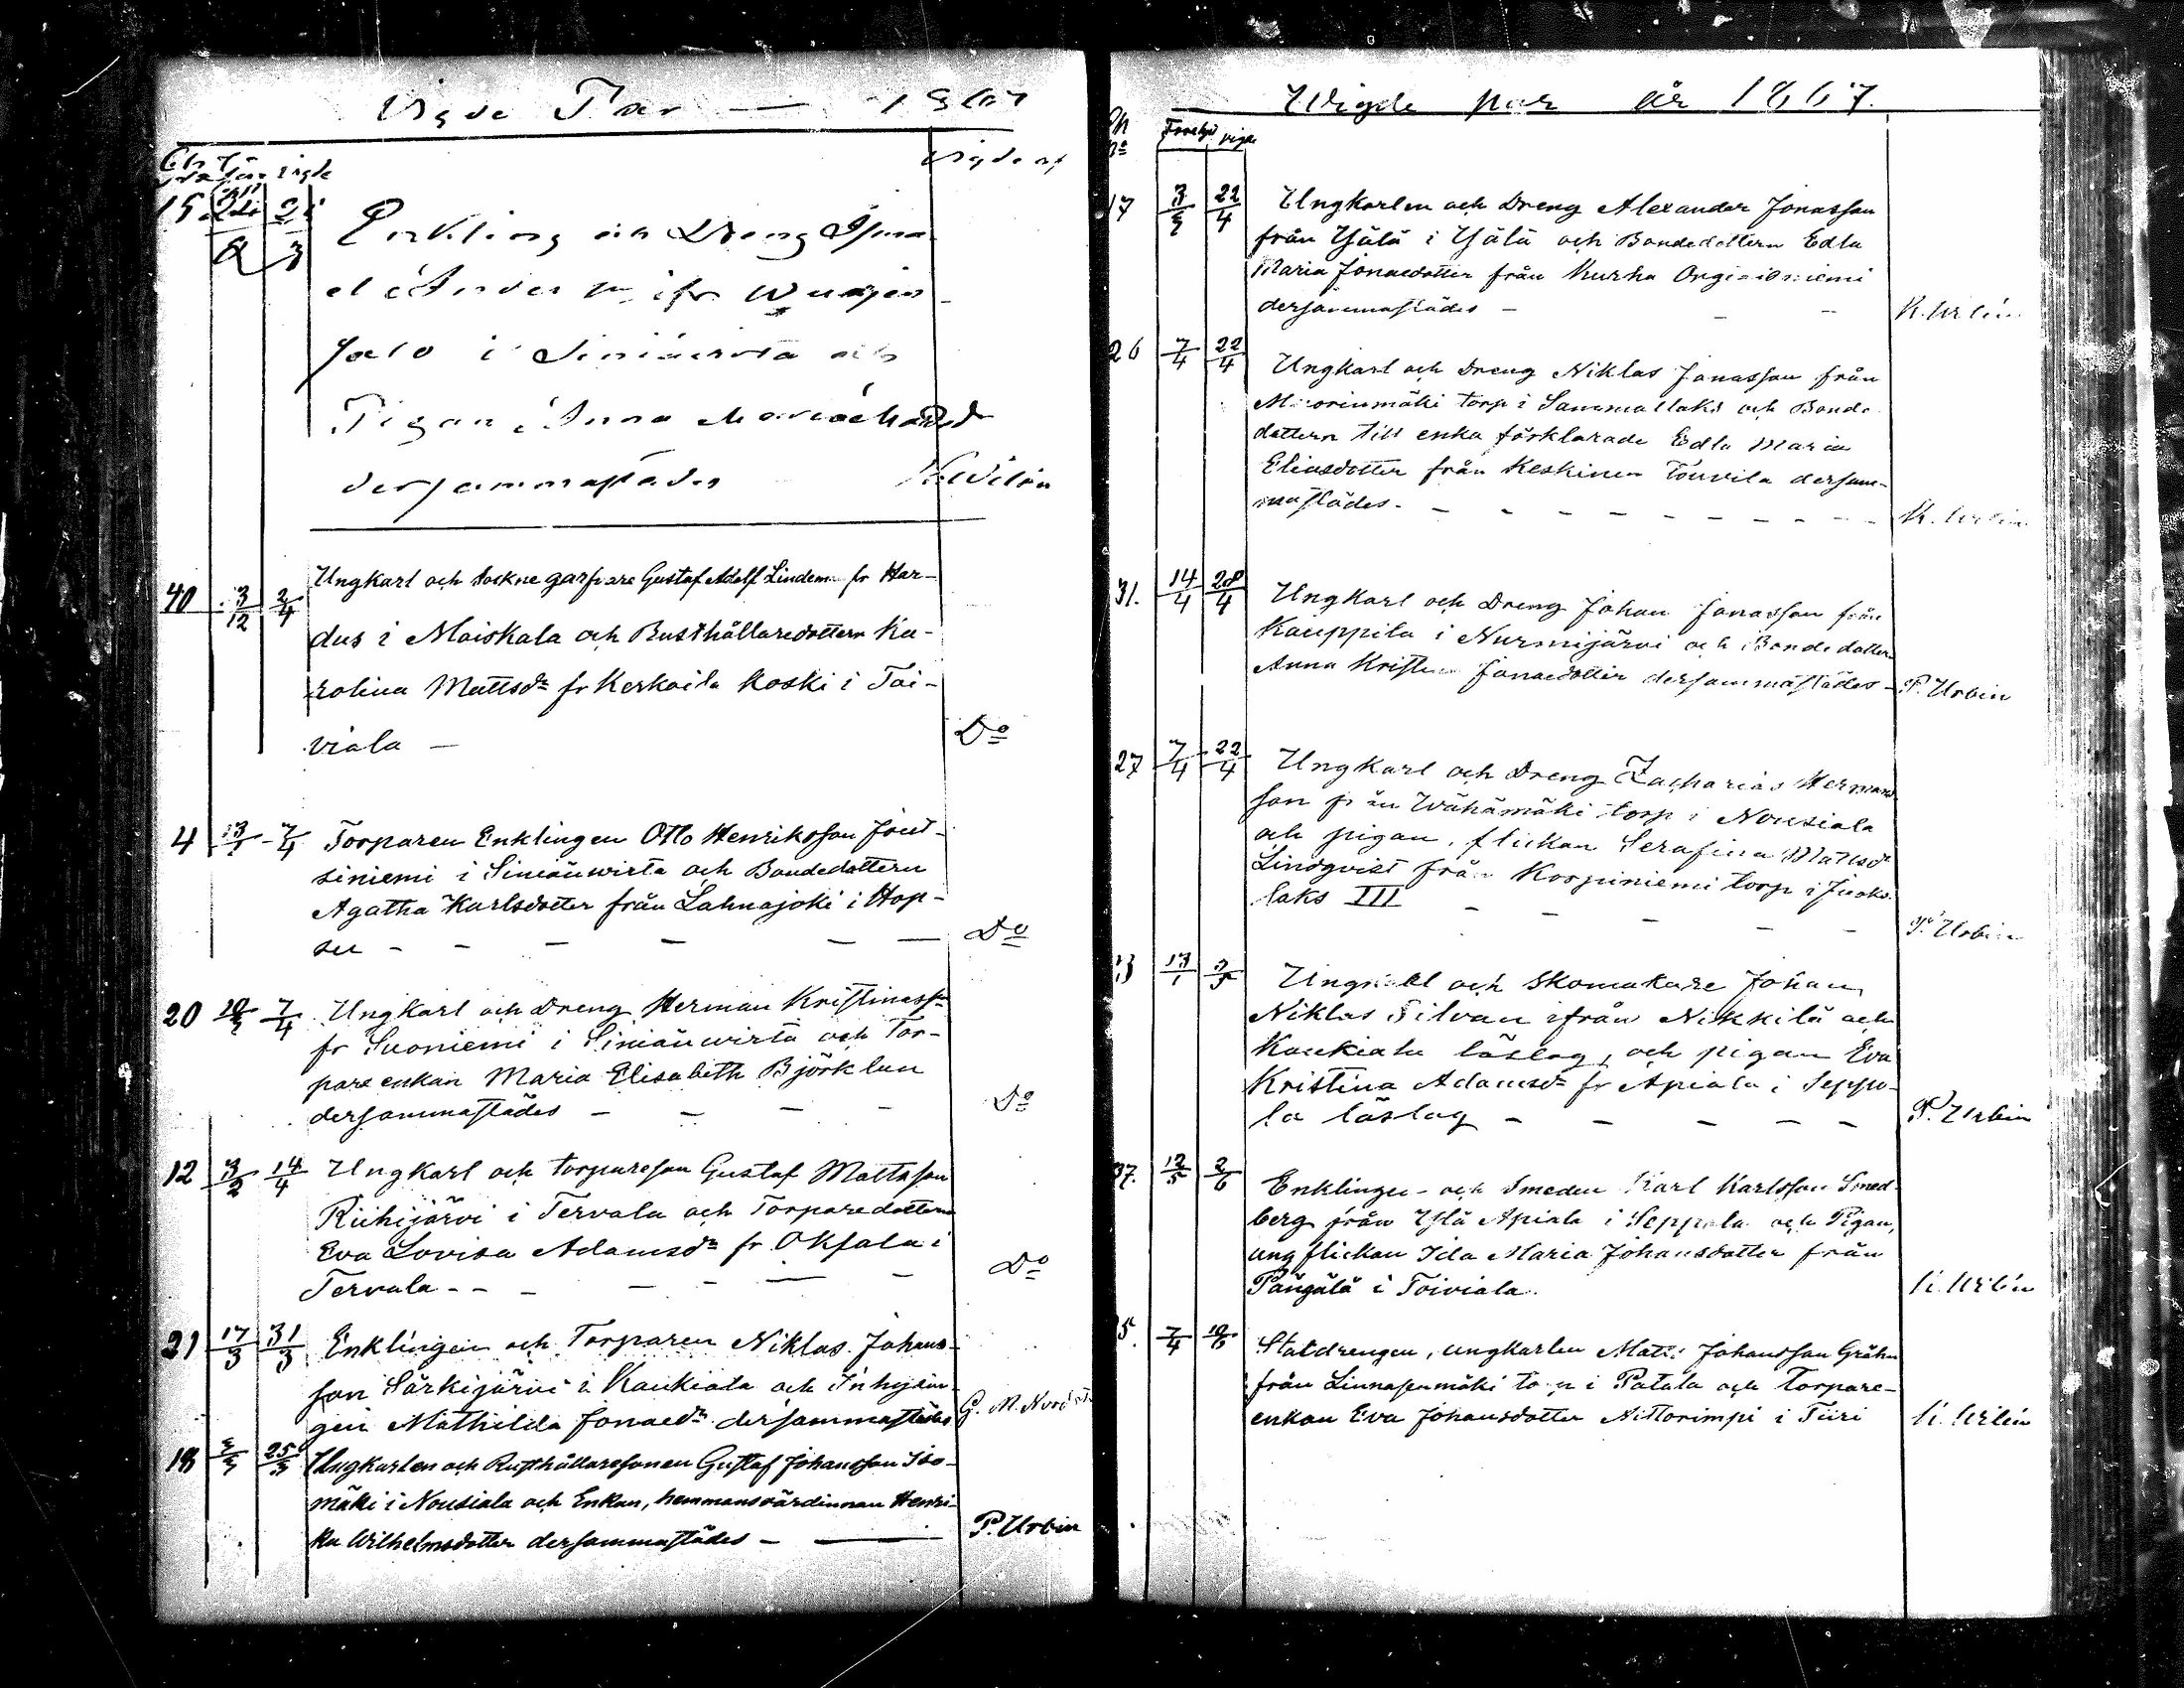 Vigde Par — 1867
vigde
Vigde af
15. 24/2 21/3 Enkling och Dreng Isma
el Anders
salo i Siniäwirta och
Pigan Anna Maria
dersammastädes
40 3/12 2/4 Ungkarl och sockne garfvare Gustaf Adolf Lindem fr Har-
dus i Moiskala och Rusthållaredottern Ka-
rolina Mattsdr fr Kerkoila Koski i Toi-
viala — Do
4 13/1 7/4 Torparen Enklingen Otto Henriksson Jout-
siniemi i Siniäuwirta och Bondedottern
Agatha Karlsdotter från Lahnajoki i Hop-
su - - - - - - Do
20 10/3 7/4 Ungkarl och Dreng Herman Kristinass
fr Suoniemi i Siniäuwirta och Tor-
pare enkan Maria Elisabeth Björklun
dersammastädes - - - - Do
12 3/2 14/4 Ungkarl och torpareson Gustaf Mattsson
Riihijärvi i Tervala och Torparedottern
Eva Lovisa Adamsdr fr Oksala i
Tervala - - - - - - - Do
21 17/3 31/3 Enklingen och Torparen Niklas Johans-
son Särkijärvi i Kaukiala och Inhysin-
gen Mathilda Jonasdr dersammastädes G. M.
18 3/3 25/3 Ungkarlen och Rusthållaresonen Gustaf Johansson Iso-
mäki i Nousiala och Enkan, hemmansvärdinnan Henri-
ka Wilhelmsdotter dersammastädes - — P. Urbin
Wigde par år 1867.
No vigde
17 3/3 22/4 Ungkarlen och Dreng Alexander Jonasson
från Yjälä i Yjälä och Bondedottern Edla
Maria Jonasdotter från Kurha
dersammastädes - - - K. Urbin
26 7/4 22/4 Ungkarl och Dreng Niklas Jonasson från
torp i Sammallaks och Bonde
dottern till enka förklarade Edla Maria
Eliasdotter från Keskinen Touvila dersam-
mastädes. - - - - - - - - - K. Urbin
31. 14/4 28/4 Ungkarl och Dreng Johan Jonasson från
Kauppila i Nurmijärvi och Bondedottern
Anna Jonasdotter dersammastädes - P. Urbin
27 7/4 22/4 Ungkarl och Dreng Zacharias Hermans
son från Wähämäki torp i Nousiala
och pigan, flickan Serafina Mattsdr
Lindqvist från Korpiniemi torp i Juoks
laks III - - - - - P. Urbin
13 13/1 Ungkarl och Skomakare Johan
Niklas Silvan ifrån Nikkilä och
Kaukiala läslag, och pigan Eva
Kristina Adamsdr fr Apiala i Seppo-
la läslag - - - - - P. Urbin
37. 12/5 2/6 Enklingen - och Smeden Karl Karlsson Smed-
berg från Yflä Apiala i Seppola och Pigan,
ung flickan Ida Maria Johansdotter från
Pängälä i Toiviala. K. Urbin
7/4 10/6 Statdrengen, ungkarlen Matts Johansson Gråhn
från Linnasenmäki torp i Patala och Torpare-
enkan Eva Johansdotter Nittorimpi i Tiiri K. Urbin